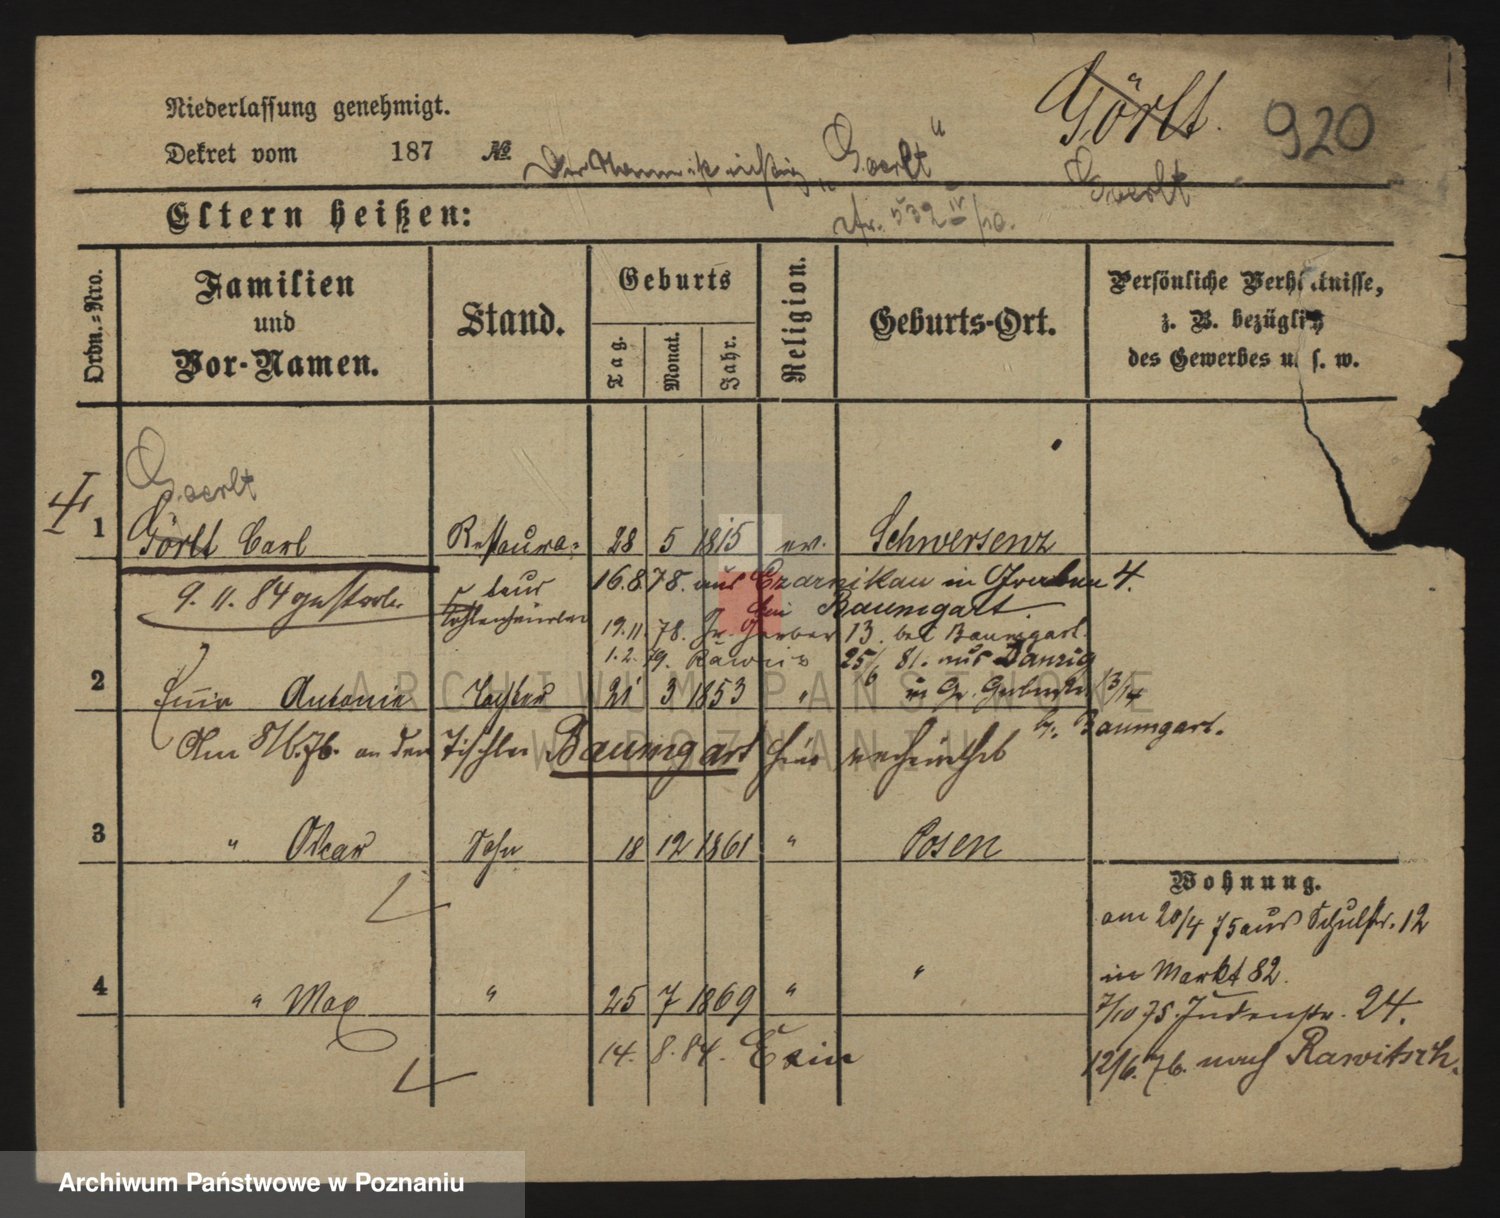 Niederlassung genehmigt.
Görlt. 920
Dekret vom 187 №
Der Name ist richtig „Goerlt“
Goerlt
Eltern heißen:
cfr. 532 IV/10.
Ordn.-Nro.
Familien und Vor-Namen.
Stand.
Geburts
Tag. Monat. Jahr.
Religion.
Geburts-Ort.
Persönliche Verhältnisse,
z. B. bezüglich
des Gewerbes u. s. w.
Goerlt
1 Görlt Carl Restaura- 28 5 1815 ev. Schwersenz
teur
9. 11. 84 gestorben
16. 8. 78. aus Czarnikau in Graben 4.
bei Baumgart
19. 11. 78. Gr. Gerber 13. bei Baumgart.
1. 2. 79. Rawicz 25/6 81. aus Danzig
2 Antonie Tochter 21 3 1853 "
in Gr. 13/14
b. Baumgart.
Am 8/6. 76. an den Tischler Baumgart hier verheirathet
3 " Oscar Sohn 18 12 1861 " Posen
Wohnung.
am 20/4 75 aus Schulstr. 12
in Markt 82.
4 " Max " 25 7 1869 " "
7/10 75. Judenstr. 24.
14. 8. 84. Exin
12/6. 76. nach Rawitsch.
ARCHIWUM PAŃSTWOWE
W POZNANIU
Archiwum Państwowe w Poznaniu